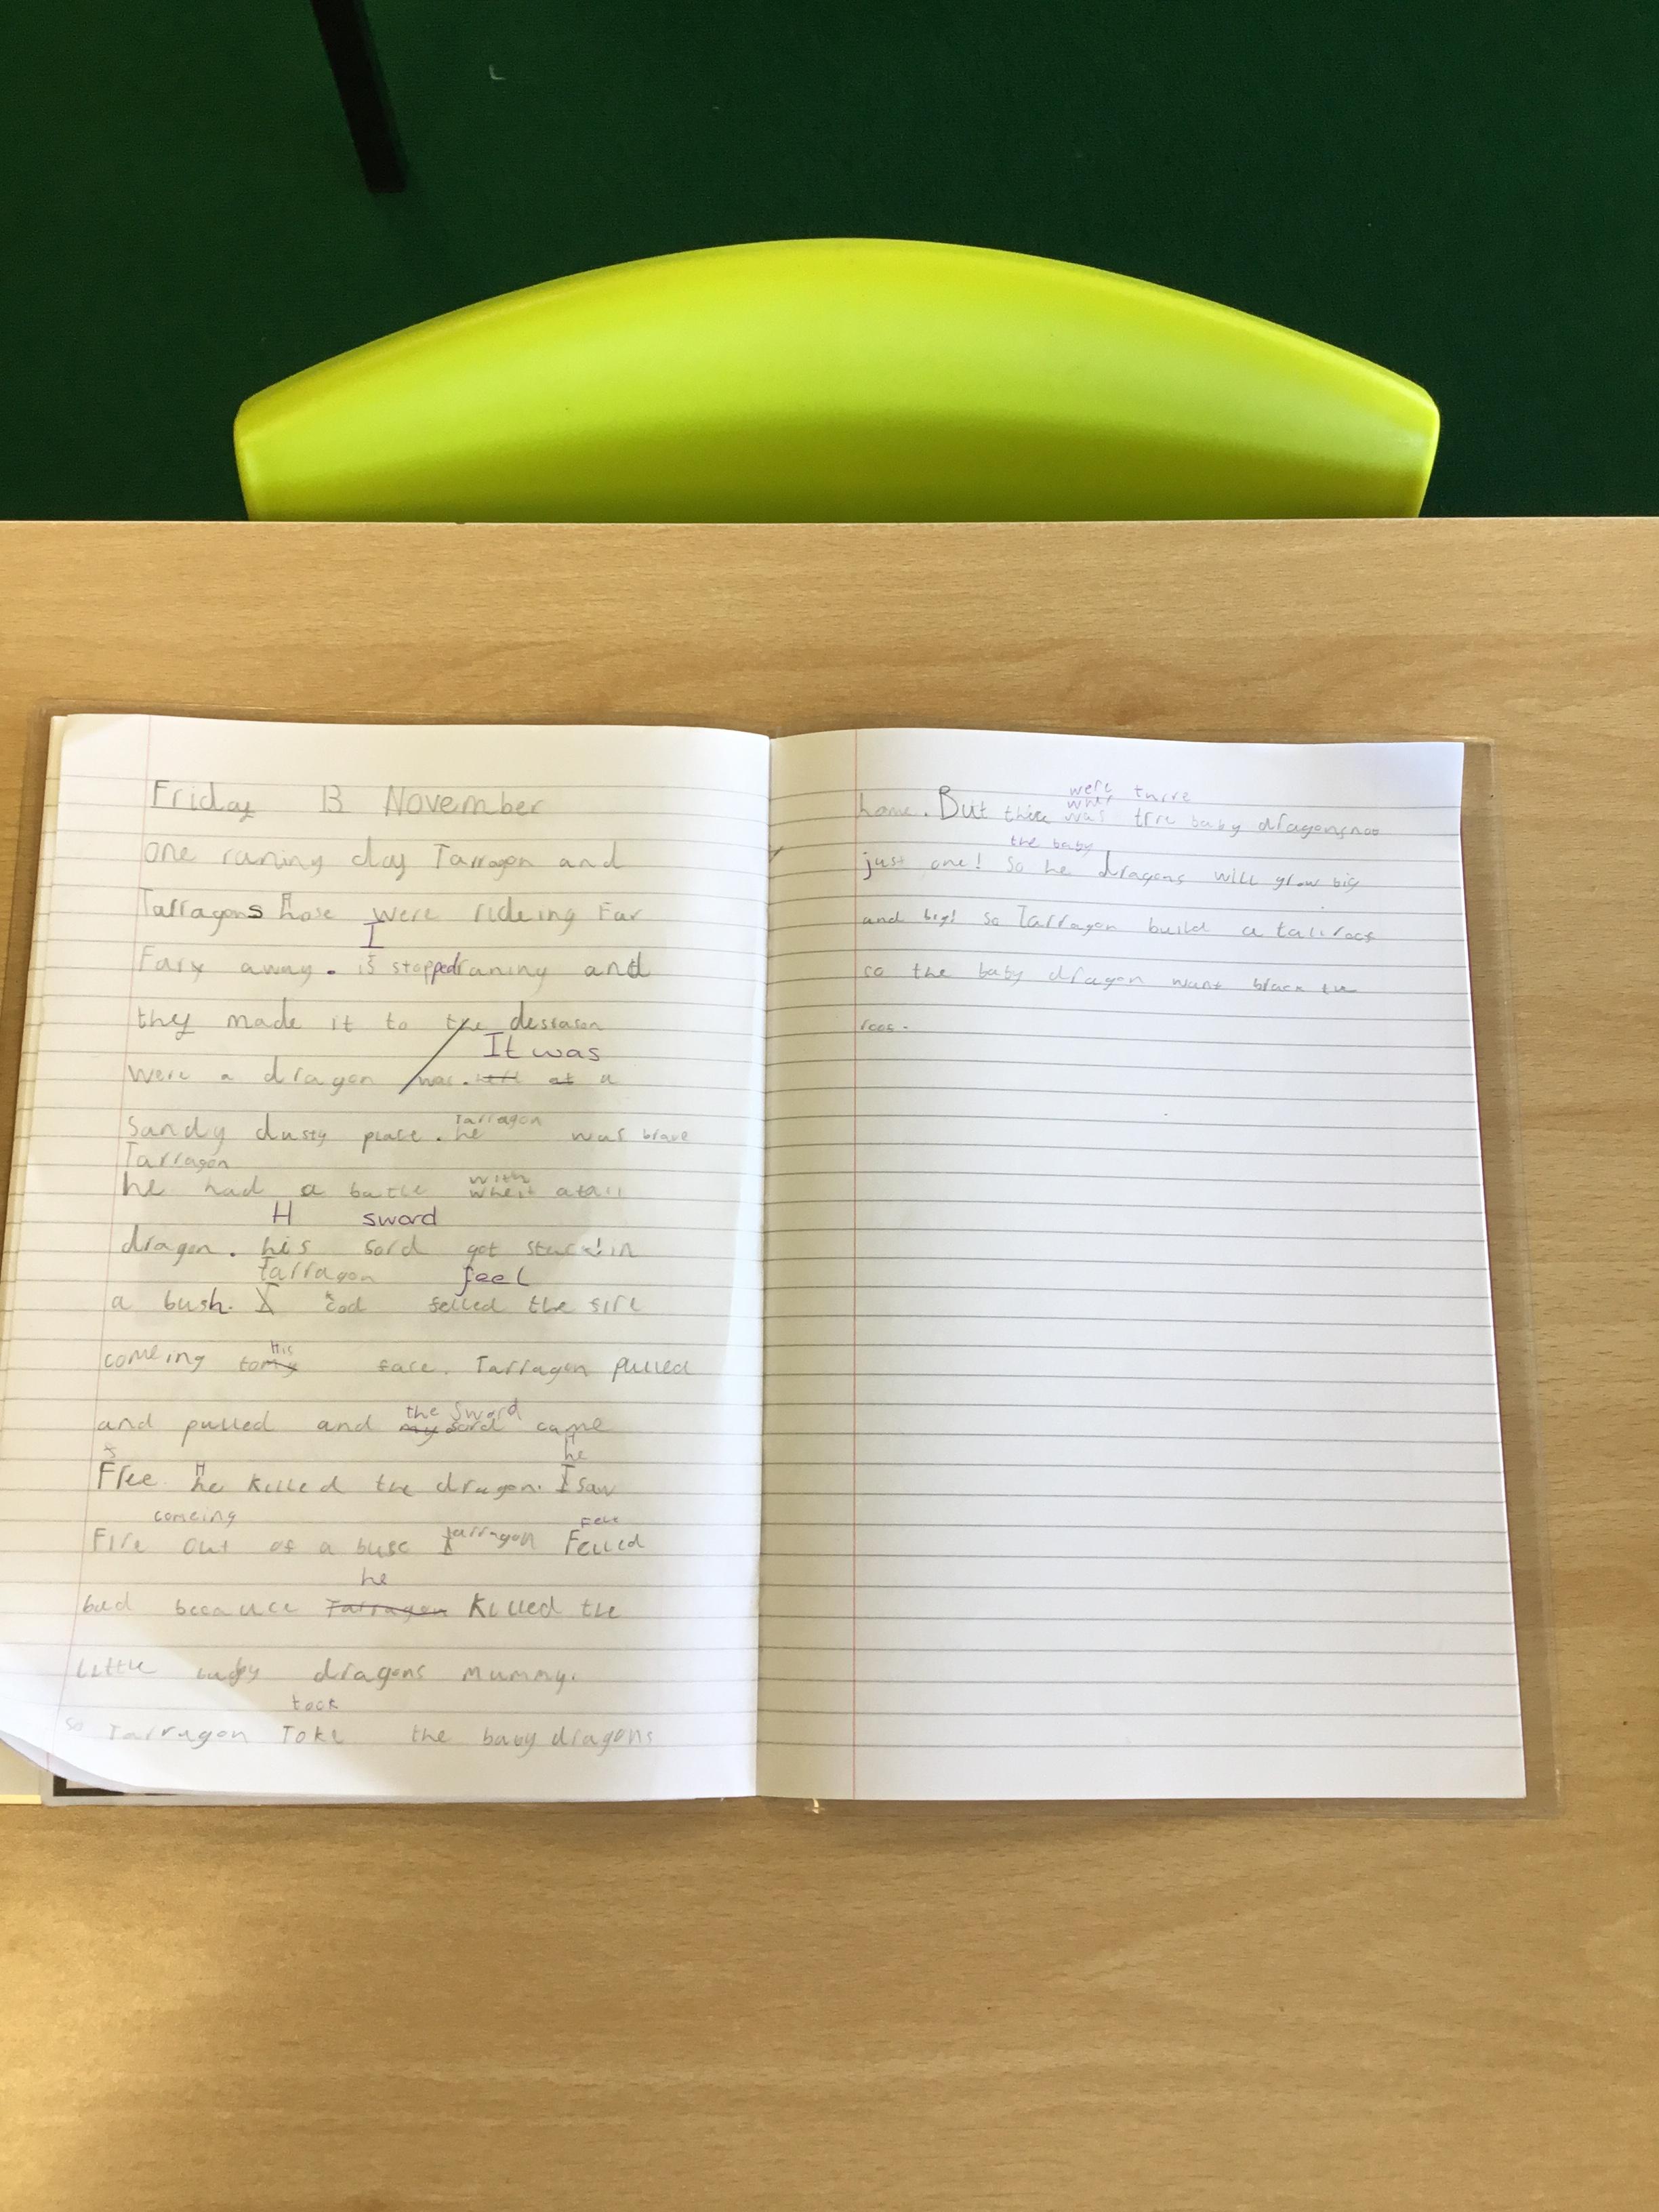 Friday 13 November
one raning day Tarragon and
Tarragons Hose were rideing Far
I
Farx away. is stopped raning and
they made it to the desrason
It was
were a dragon was. a
Sandy dusty place. he Tarragon was brave
Tarragon
he had a batle with atall
H sword
dragon. his sord got stuck! in
Tarragon feel
a bush. I cod felled the fire
His
comeing to my face. Tarragon pulled
the Sword
and pulled and my sord came
he
Free. He killed the dragon. I saw
comeing Fell
Fire out of a buse I Tarragon Felled
he
bad because Tarragon Killed the
Little baby dragons mummy.
took
so Tarragon Toke the baby dragons
were thrre
home. But there was trre baby dragons not
the baby
just one! So he dragons will grow big
and big! So Tarragon build a tall roof
so the baby dragon want brack the
roof.